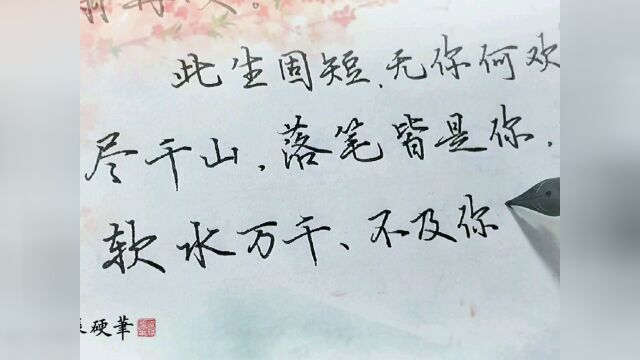 此生固短、无你何欢
尽千山、落笔皆是你、
软水万千、不及你
硬筆